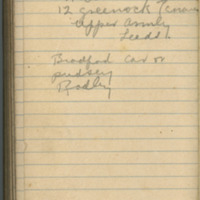 12 Greenock
Upper Armly
Leeds
Bradford Car or
pudsey
Rodley